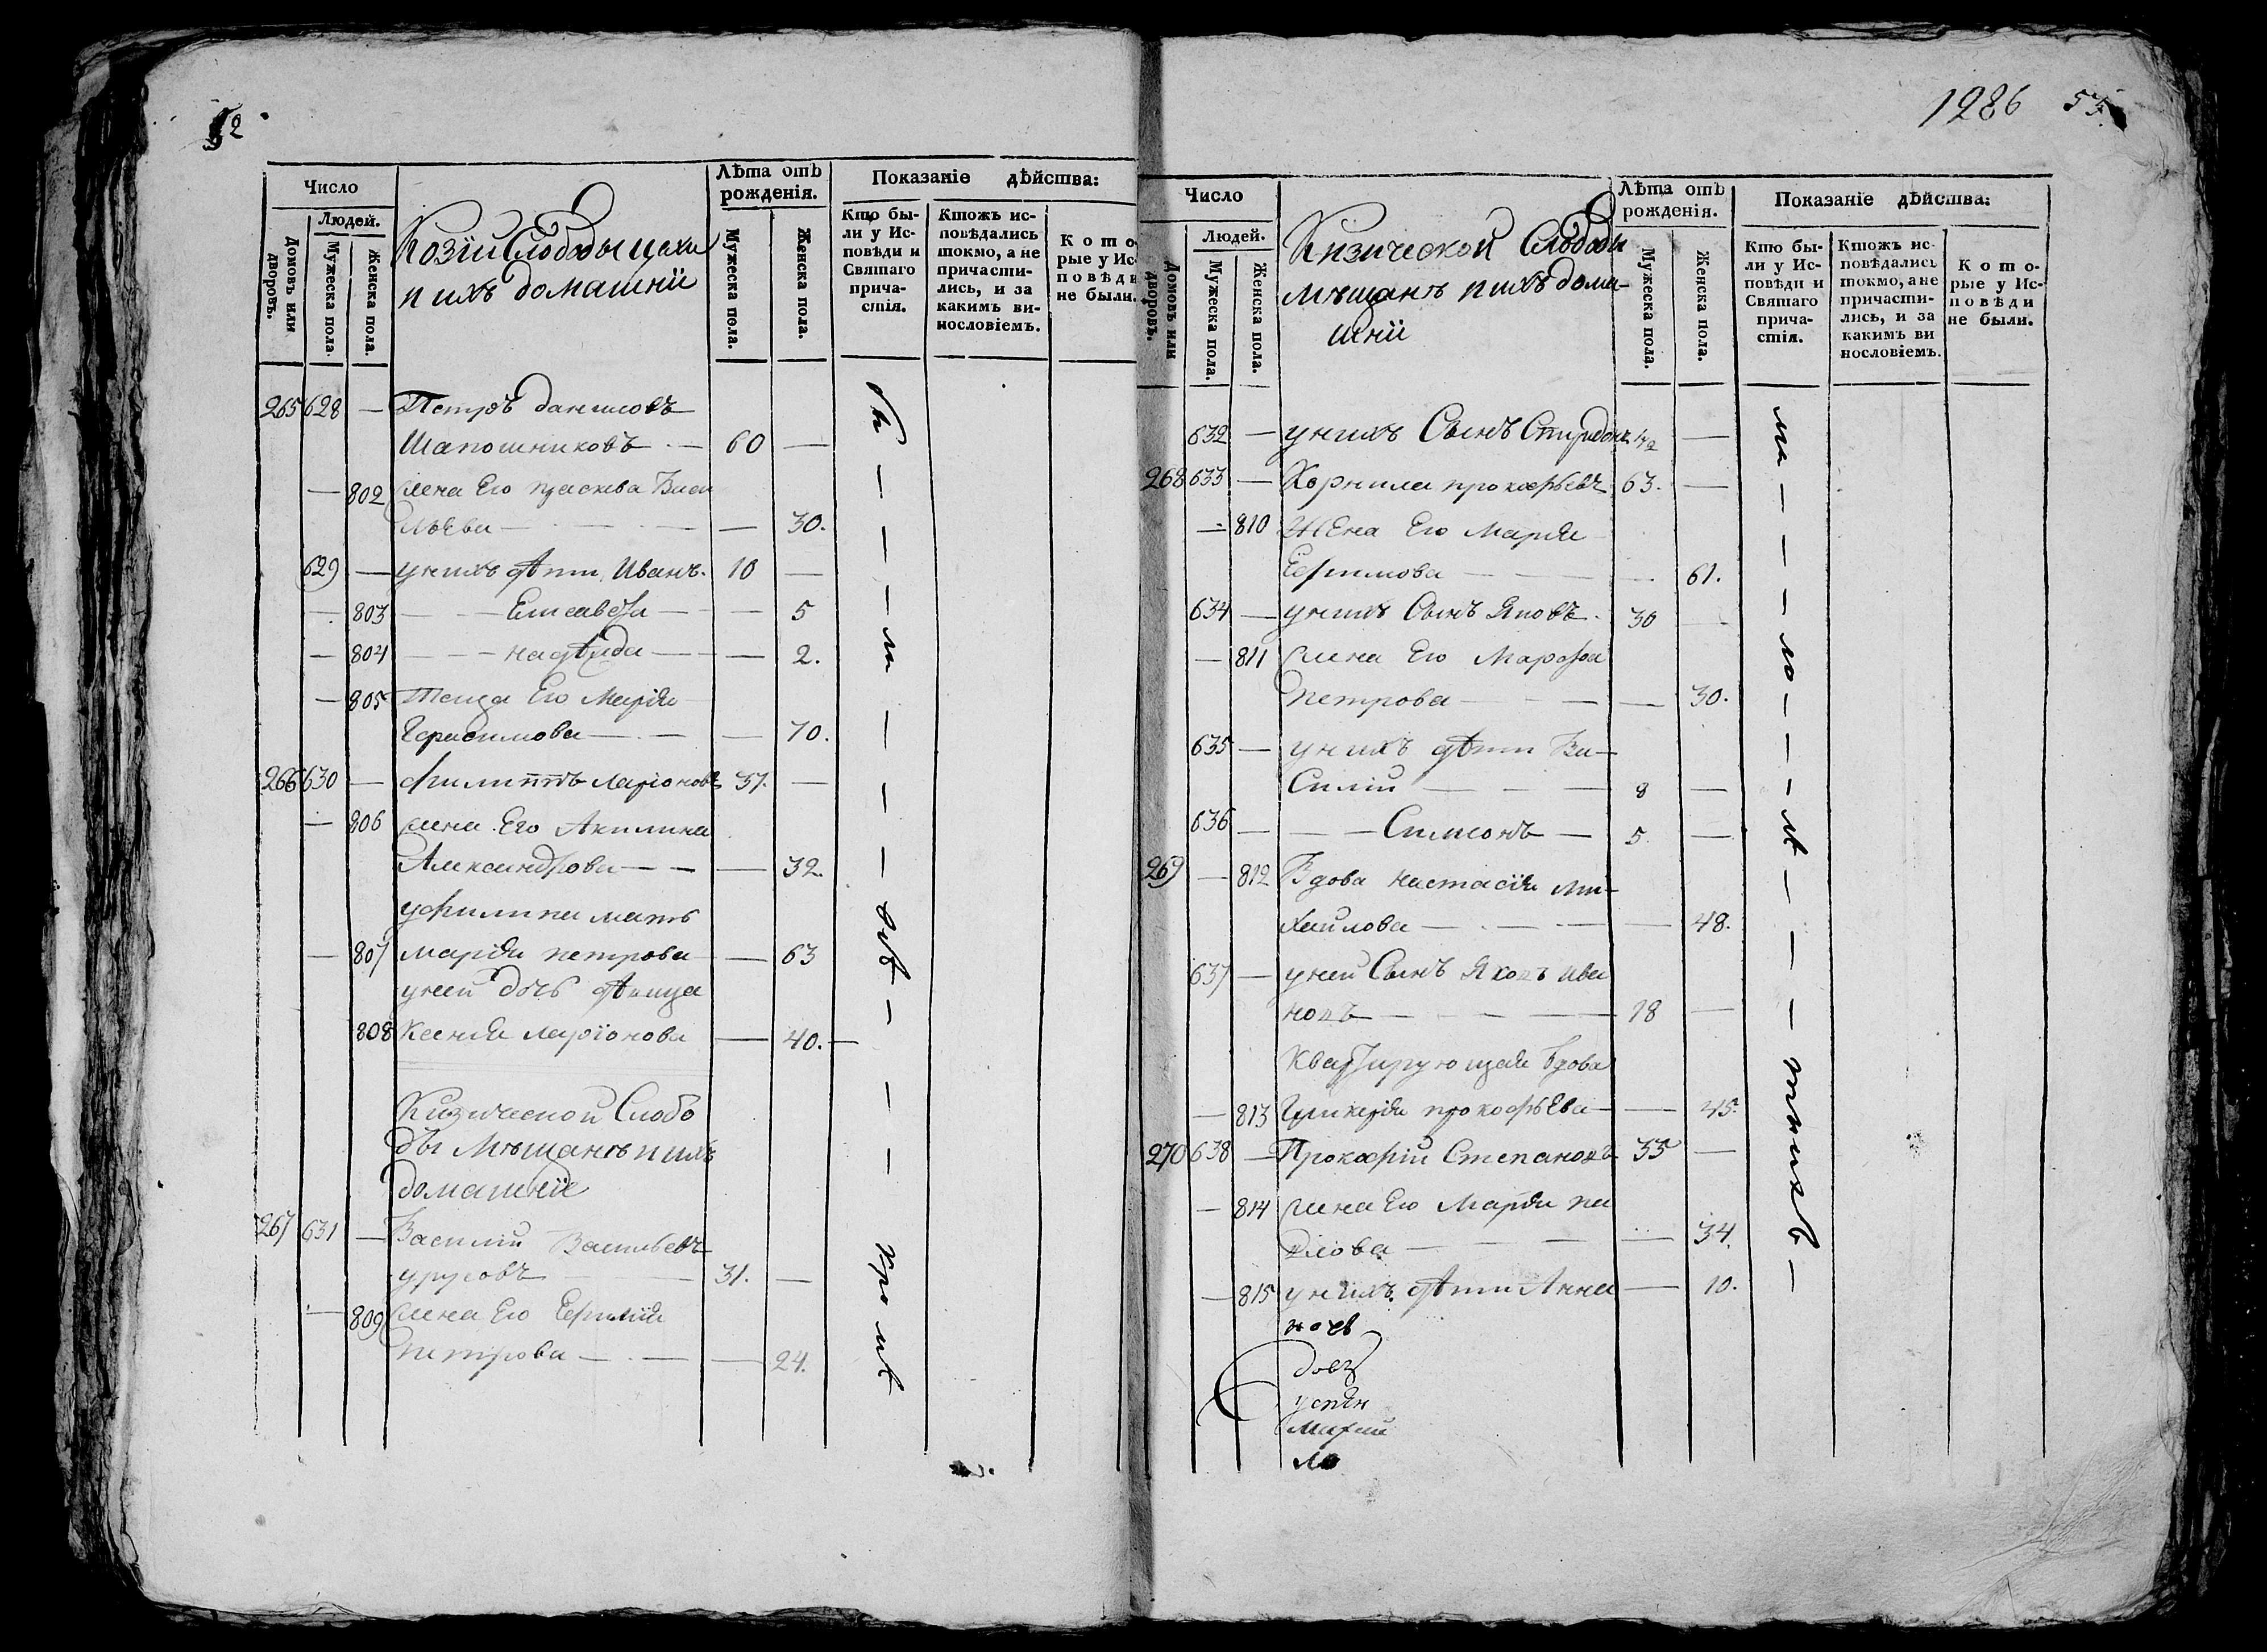 52
Число
Людей.
Домовъ или дворовъ.
Мужеска пола.
Женска пола.
Козiи Слободы цехи
и ихъ домашнiи
Лѣта отъ
рожденiя.
Мужеска пола.
Женска пола.
Показанiе дѣйства:
Кто бы-
ли у Ис-
повѣди и
Святаго
прича-
стiя.
Ктожъ ис-
повѣдались
токмо, а не
причасти-
лись, и за
какимъ ви-
нословiемъ.
Кото
рые у Ис
повѣди
не были.
265 628 — Петръ даниловъ
Шапошниковъ — 60 —
— 802 жена Его праскева Васи
льева — — 30.
629 — у нихъ дѣти Иванъ. 10 —
— 803 — — Елисавета — — 5
— 804 — — надѣжда — — 2.
— 805 Теща Его Марiя
Герасимова — — 70.
266 630 — филиппъ Ларiоновъ 37. —
— 806 жена Его Акилина
Александрова — — 32.
у филипа мать
— 807 марiя петрова — 63
у ней дочь дѣвица
808 Ксенiя ларiонова — 40. —
Кизической Слобо
ды мѣщанъ и ихъ
домашнiе
267 631 — Василiй Васильевъ
урусовъ — 31. —
— 809 жена Его Ефимiя
петрова — — 24.
1286 53.
Число
Людей.
Домовъ или дворовъ.
Мужеска пола.
Женска пола.
Кизической Слободы
мѣщанъ и ихъ дома-
шнiи
Лѣта отъ
рожденiя.
Мужеска пола.
Женска пола.
Показанiе дѣйства:
Кто бы-
ли у Ис-
повѣди и
Святаго
прича-
стiя.
Ктожъ ис-
повѣдались
токмо, а не
причасти-
лись, и за
какимъ ви
нословiемъ.
Кото-
рые у Ис-
повѣди
не были.
632 — у нихъ Сынъ Спиридонъ —
268 633 — Корнила прокофьевъ 63. —
— 810 Жена Его Марiя
Ефимова — — 61.
634 — у нихъ Сынъ Яковъ 30 —
— 811 жена Его Марфа
петрова — — 30.
635 — у нихъ дѣти Ва-
силiй — 8 —
636 — — — Симеонъ — 5. —
269 — 812 Вдова настасiя ми-
хайлова — — 48.
637 — у ней Сынъ Яковъ ива
новъ — 18 —
Квартирующая вдова
— 813 Гликерiя прокофьева — — 45.
270 638 — Прокофiй Степановъ 35 —
— 814 жена Его Марiя па
влова — — 34.
— 815 у нихъ дѣти Анна — 10.